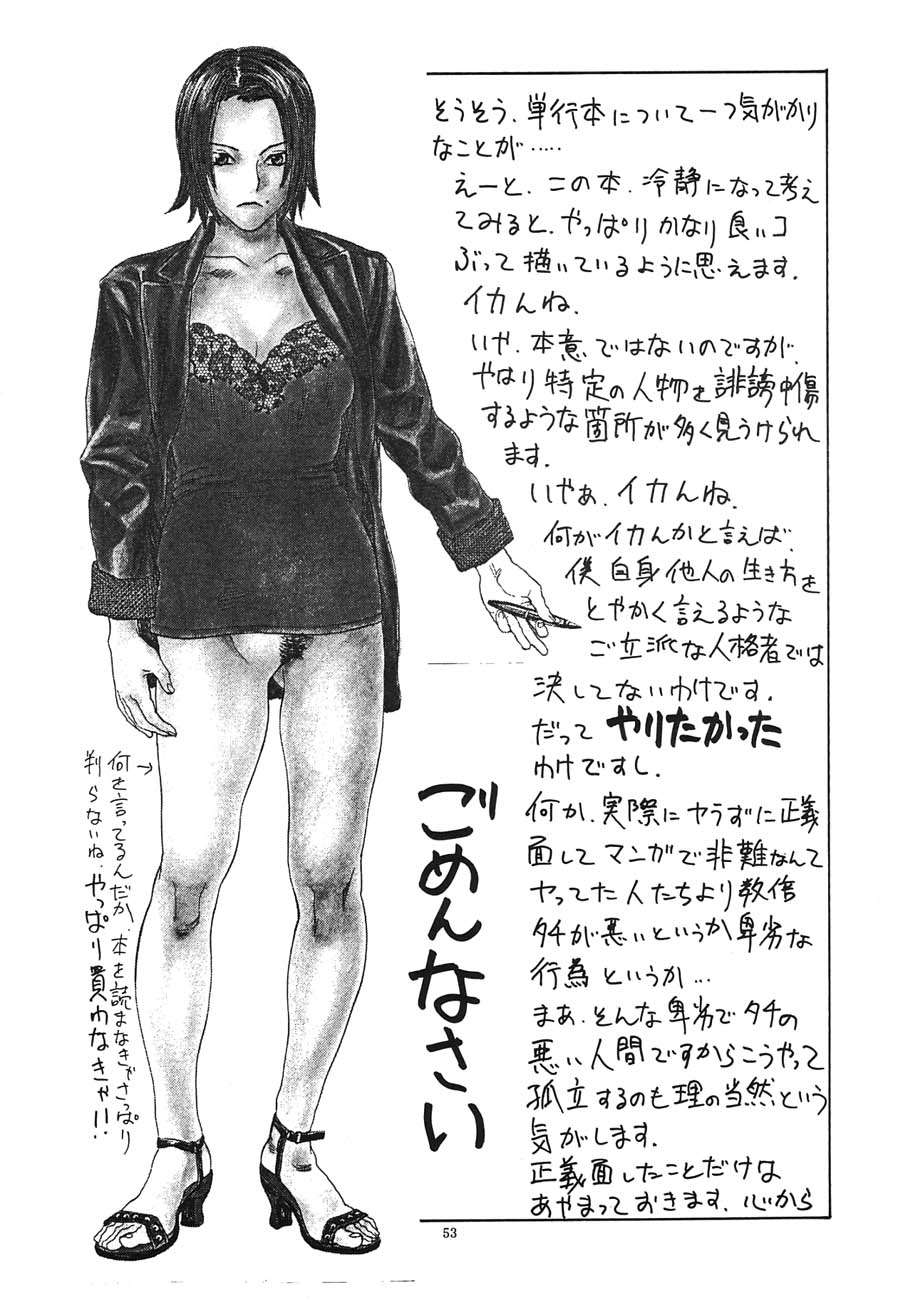 そうそう、単行本について一つ気がかり
なことが……
えーと、この本、冷静になって考え
てみると、やっぱりかなり良いコ
ぶって描いているように思えます。
イカんね。
いや、本意ではないのですが、
やはり特定の人物を誹謗中傷
するような箇所が多く見うけられ
ます。
いやぁ、イカんね。
何がイカんかと言えば、
僕自身他人の生き方を
とやかく言えるような
ご立派な人格者では
決してないわけです。
だって やりたかった
わけですし。
何か、実際にヤらずに正義
面してマンガで非難なんて
ヤってた人たちより数倍
タチが悪いというか卑劣な
行為というか…
まあ、そんな卑劣でタチの
悪い人間ですからこうやって
孤立するのも理の当然という
気がします。
正義面したことだけは
あやまっておきます。心から
ごめんなさい
→
何を言ってるんだか、本を読まなきゃさっぱり
判らないね、やっぱり買わなきゃ!!
53